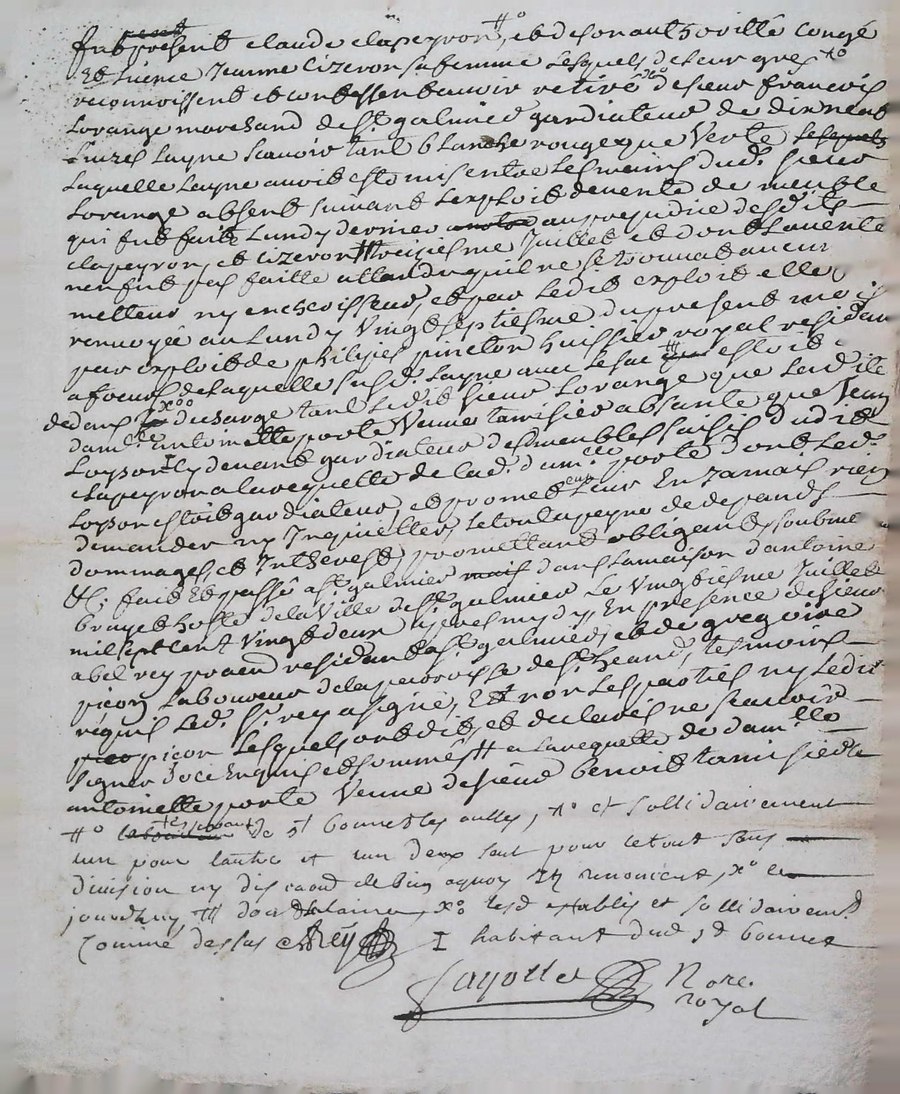 furent present claude clapeyron, #° et de son authorité congé
Et licence Jeanne Cizeron sa femme Lesquels de leur gré x°
reconnoissent et confessent avoir retiré de sieur françois
Lorange marchand de St galmier gardiateur de dix neuf
Livres Layne scavoir tant blanche rouge que verte
Laquelle Layne avoit esté mise entre Les mains dud. sieur
Lorange absent suivant Lexploit de vente de meuble
qui fut faite Lundy dernier au prejudice desdits
clapeyron et cizeron treiziesme Juillet et dont La vente
nen fut pas faitte attandu quil ne se trouva aucun
metteur ny encherisseur, et par Ledit exploit elle
renvoyée au Lundy vingt septiesme du present mois
par exploit de philipes pincton huissier royal residan
a foeurs de Laquelle susd. Layne avec Le sac estoit
dedans x°° decharge tant Ledit sieur Lorange que Ladite
dam.lle Entoinette porte Veuve tamisier absante que Jean
Loyson Icy devant gardiateur des meubles saisis dudit
clapeyron a la requette de lad. dam.lle porte dont Led.
Loyson estoit gardiateur, et promet Leur En Jamais rien
demander ny Inquietter, le tout a peyne de depands
dommages, et Intherest, promettant obligeant, soubmet
&c. fait Et passé a St galmier dans La maison d'antoine
hoste de la Ville de St galmier Le Vingtiesme Juillet
mil sept cent Vingt deux apres mydy, En presence de sieur
abel rey praen residant a St galmier, et de gregoire
picon Laboureur de la parroisse de St heand, tesmoins
requis Led. Sr. rey a signé, Et non Les parties ny Ledit
picon Lesquels ont dit, et declarés ne scavoir
signer de ce Enquis et sommés # a La requette de dam.lle
antoinette porte Veuve de sieur benoit tamisier
#° de St bonnet les oulles, x° et sollidairement
un pour lautre et un deux seul pour le tout sans
division ny discution de biens a quoy Ils renoncent, x° le
jourdhuy x°° lesd. establis et sollidairement
comme dessus Rey I habitant dud. St bonnet
Nore.
royal